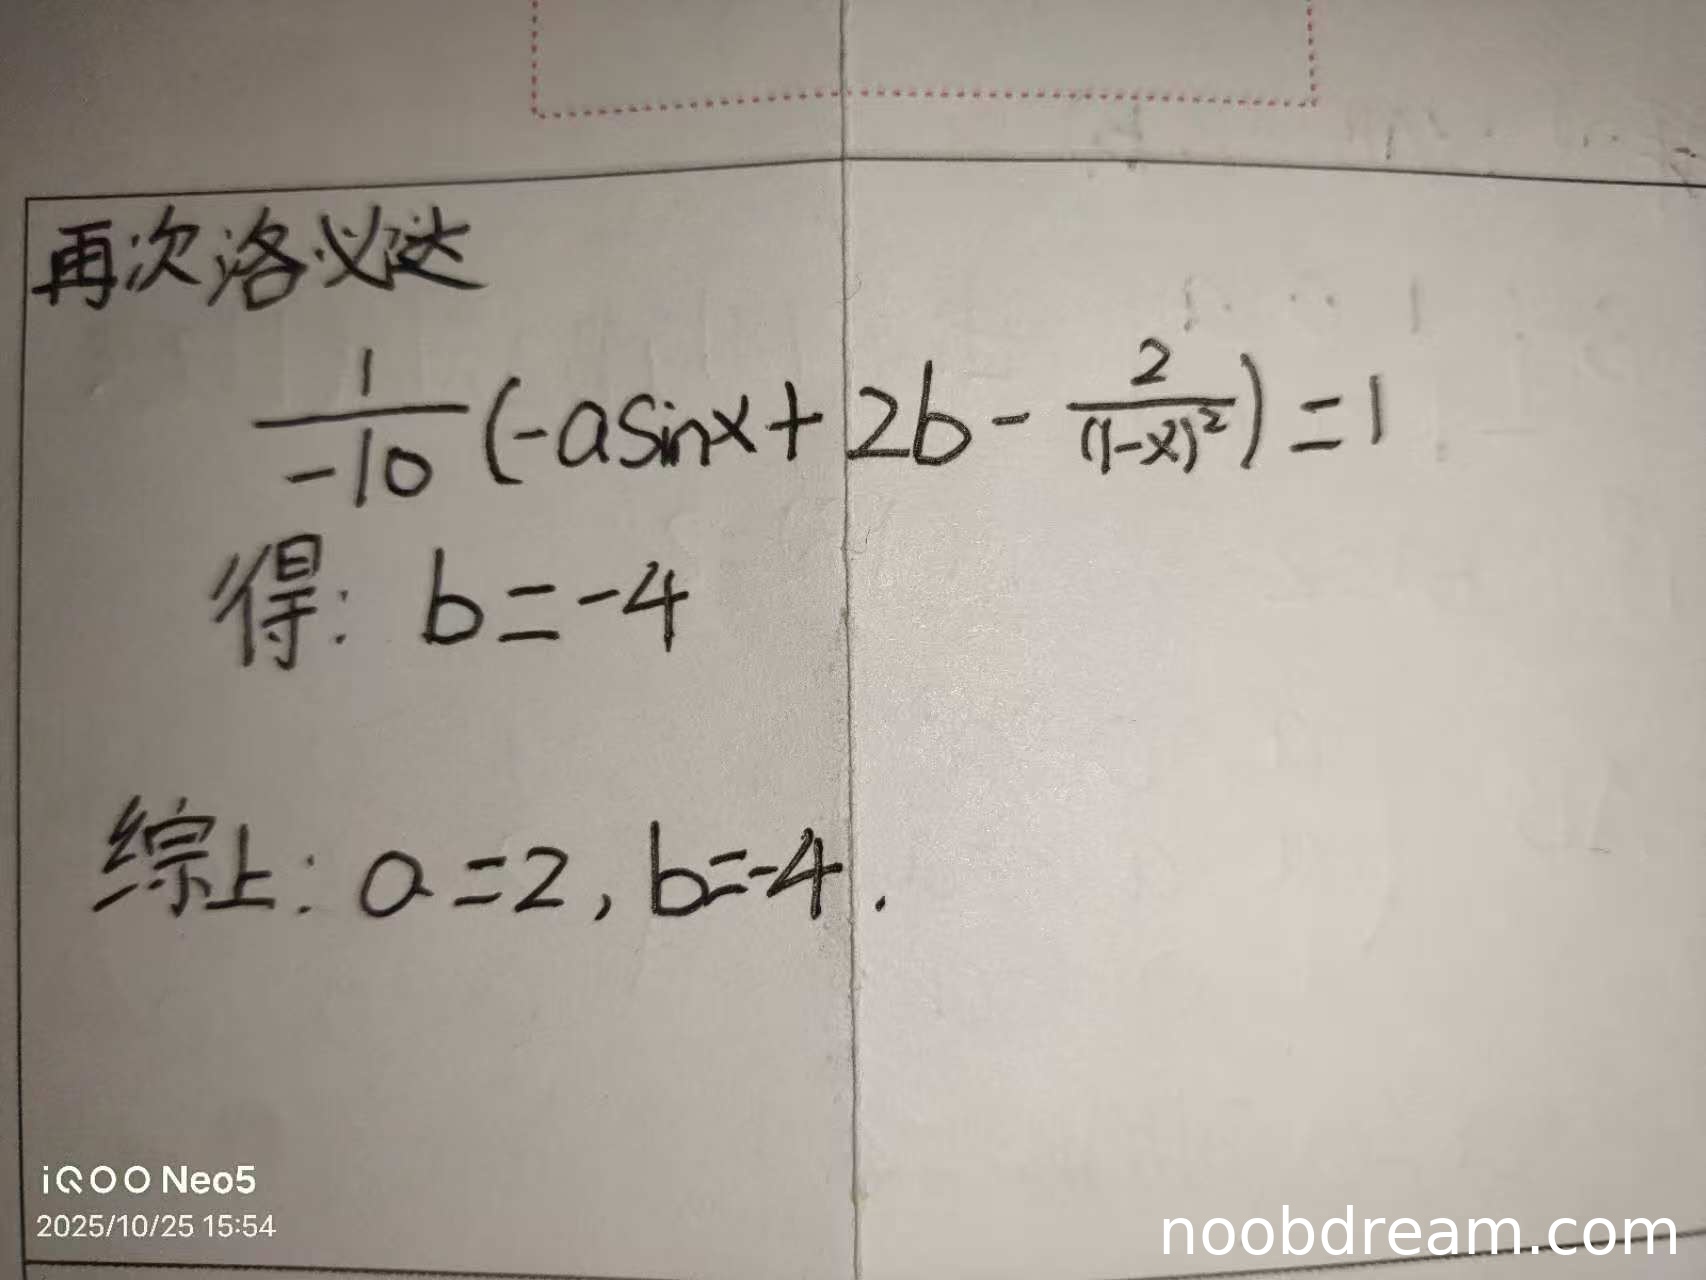 再次洛必达
\frac{1}{-10}(-a\sin x+2b-\frac{2}{(1-x)^2})=1
得: b=-4
综上: a=2, b=-4.
iQOO Neo5
2025/10/25 15:54
noobdream.com